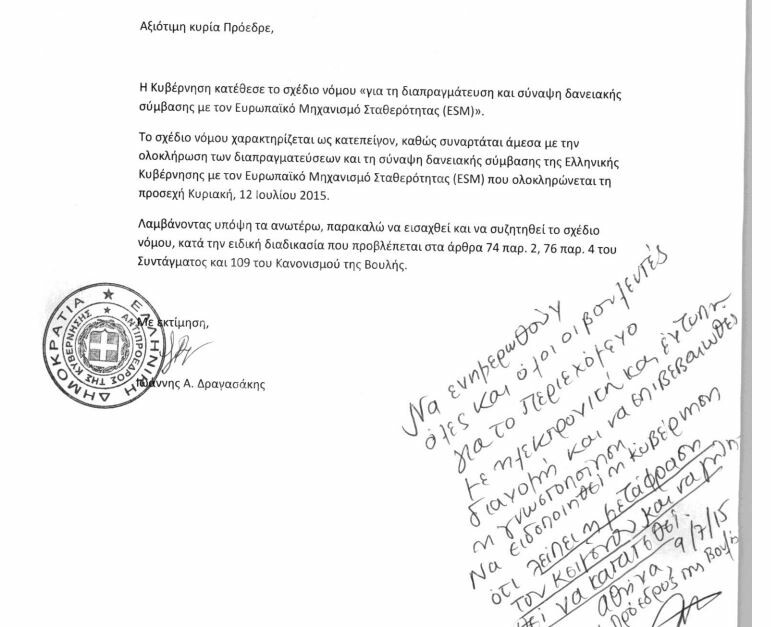 Αξιότιμη κυρία Πρόεδρε,
Η Κυβέρνηση κατέθεσε το σχέδιο νόμου «για τη διαπραγμάτευση και σύναψη δανειακής
σύμβασης με τον Ευρωπαϊκό Μηχανισμό Σταθερότητας (ESM)».
Το σχέδιο νόμου χαρακτηρίζεται ως κατεπείγον, καθώς συναρτάται άμεσα με την
ολοκλήρωση των διαπραγματεύσεων και τη σύναψη δανειακής σύμβασης της Ελληνικής
Κυβέρνησης με τον Ευρωπαϊκό Μηχανισμό Σταθερότητας (ESM) που ολοκληρώνεται τη
προσεχή Κυριακή, 12 Ιουλίου 2015.
Λαμβάνοντας υπόψη τα ανωτέρω, παρακαλώ να εισαχθεί και να συζητηθεί το σχέδιο
νόμου, κατά την ειδική διαδικασία που προβλέπεται στα άρθρα 74 παρ. 2, 76 παρ. 4 του
Συντάγματος και 109 του Κανονισμού της Βουλής.
Με εκτίμηση,
Ιωάννης Α. Δραγασάκης
ΕΛΛΗΝΙΚΗ ΔΗΜΟΚΡΑΤΙΑ
ΑΝΤΙΠΡΟΕΔΡΟΣ ΤΗΣ ΚΥΒΕΡΝΗΣΗΣ
Να ενημερωθούν
όλες και όλοι οι βουλευτές
για το περιεχόμενο
με ηλεκτρονική και έντυπη
διανομή και να επιβεβαιωθεί
η γνωστοποίηση
Να ειδοποιηθεί η κυβέρνηση
ότι λείπει η μετάφραση
του κειμένου και να
να κατατεθεί.
Αθήνα, 9/7/15
Πρόεδρος της Βουλής